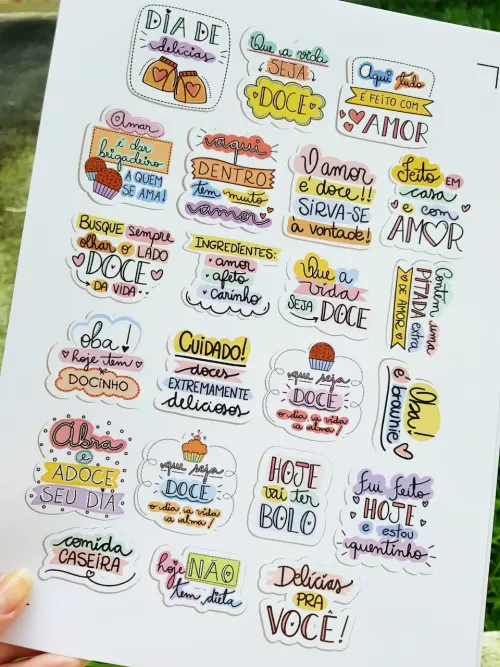 DIA DE
delícias
Que a vida
SEJA
DOCE
Aqui tudo
É FEITO COM
AMOR
Amar
é dar
brigadeiro
A QUEM
SE AMA!
aqui
DENTRO
tem muito
amor
O amor
é doce!!
SIRVA-SE
à vontade!
Feito EM
casa
e com
AMOR
BUSQUE sempre
olhar o LADO
DOCE
DA VIDA
INGREDIENTES:
• amor
• afeto
• carinho
Que a
vida
SEJA DOCE
Contém uma
PITADA extra
DE AMOR
oba!
hoje tem
DOCINHO
CUIDADO!
doces
EXTREMAMENTE
deliciosos
que seja
DOCE
o dia, a vida
a alma!
Oba!
é brownie
Abra
e
ADOCE
SEU DIA
que seja
DOCE
o dia, a vida
a alma!
HOJE
vai ter
BOLO
fui feito
HOJE
e estou
quentinho
comida
CASEIRA
hoje NÃO
tem dieta
Delícias
PRA
VOCÊ!